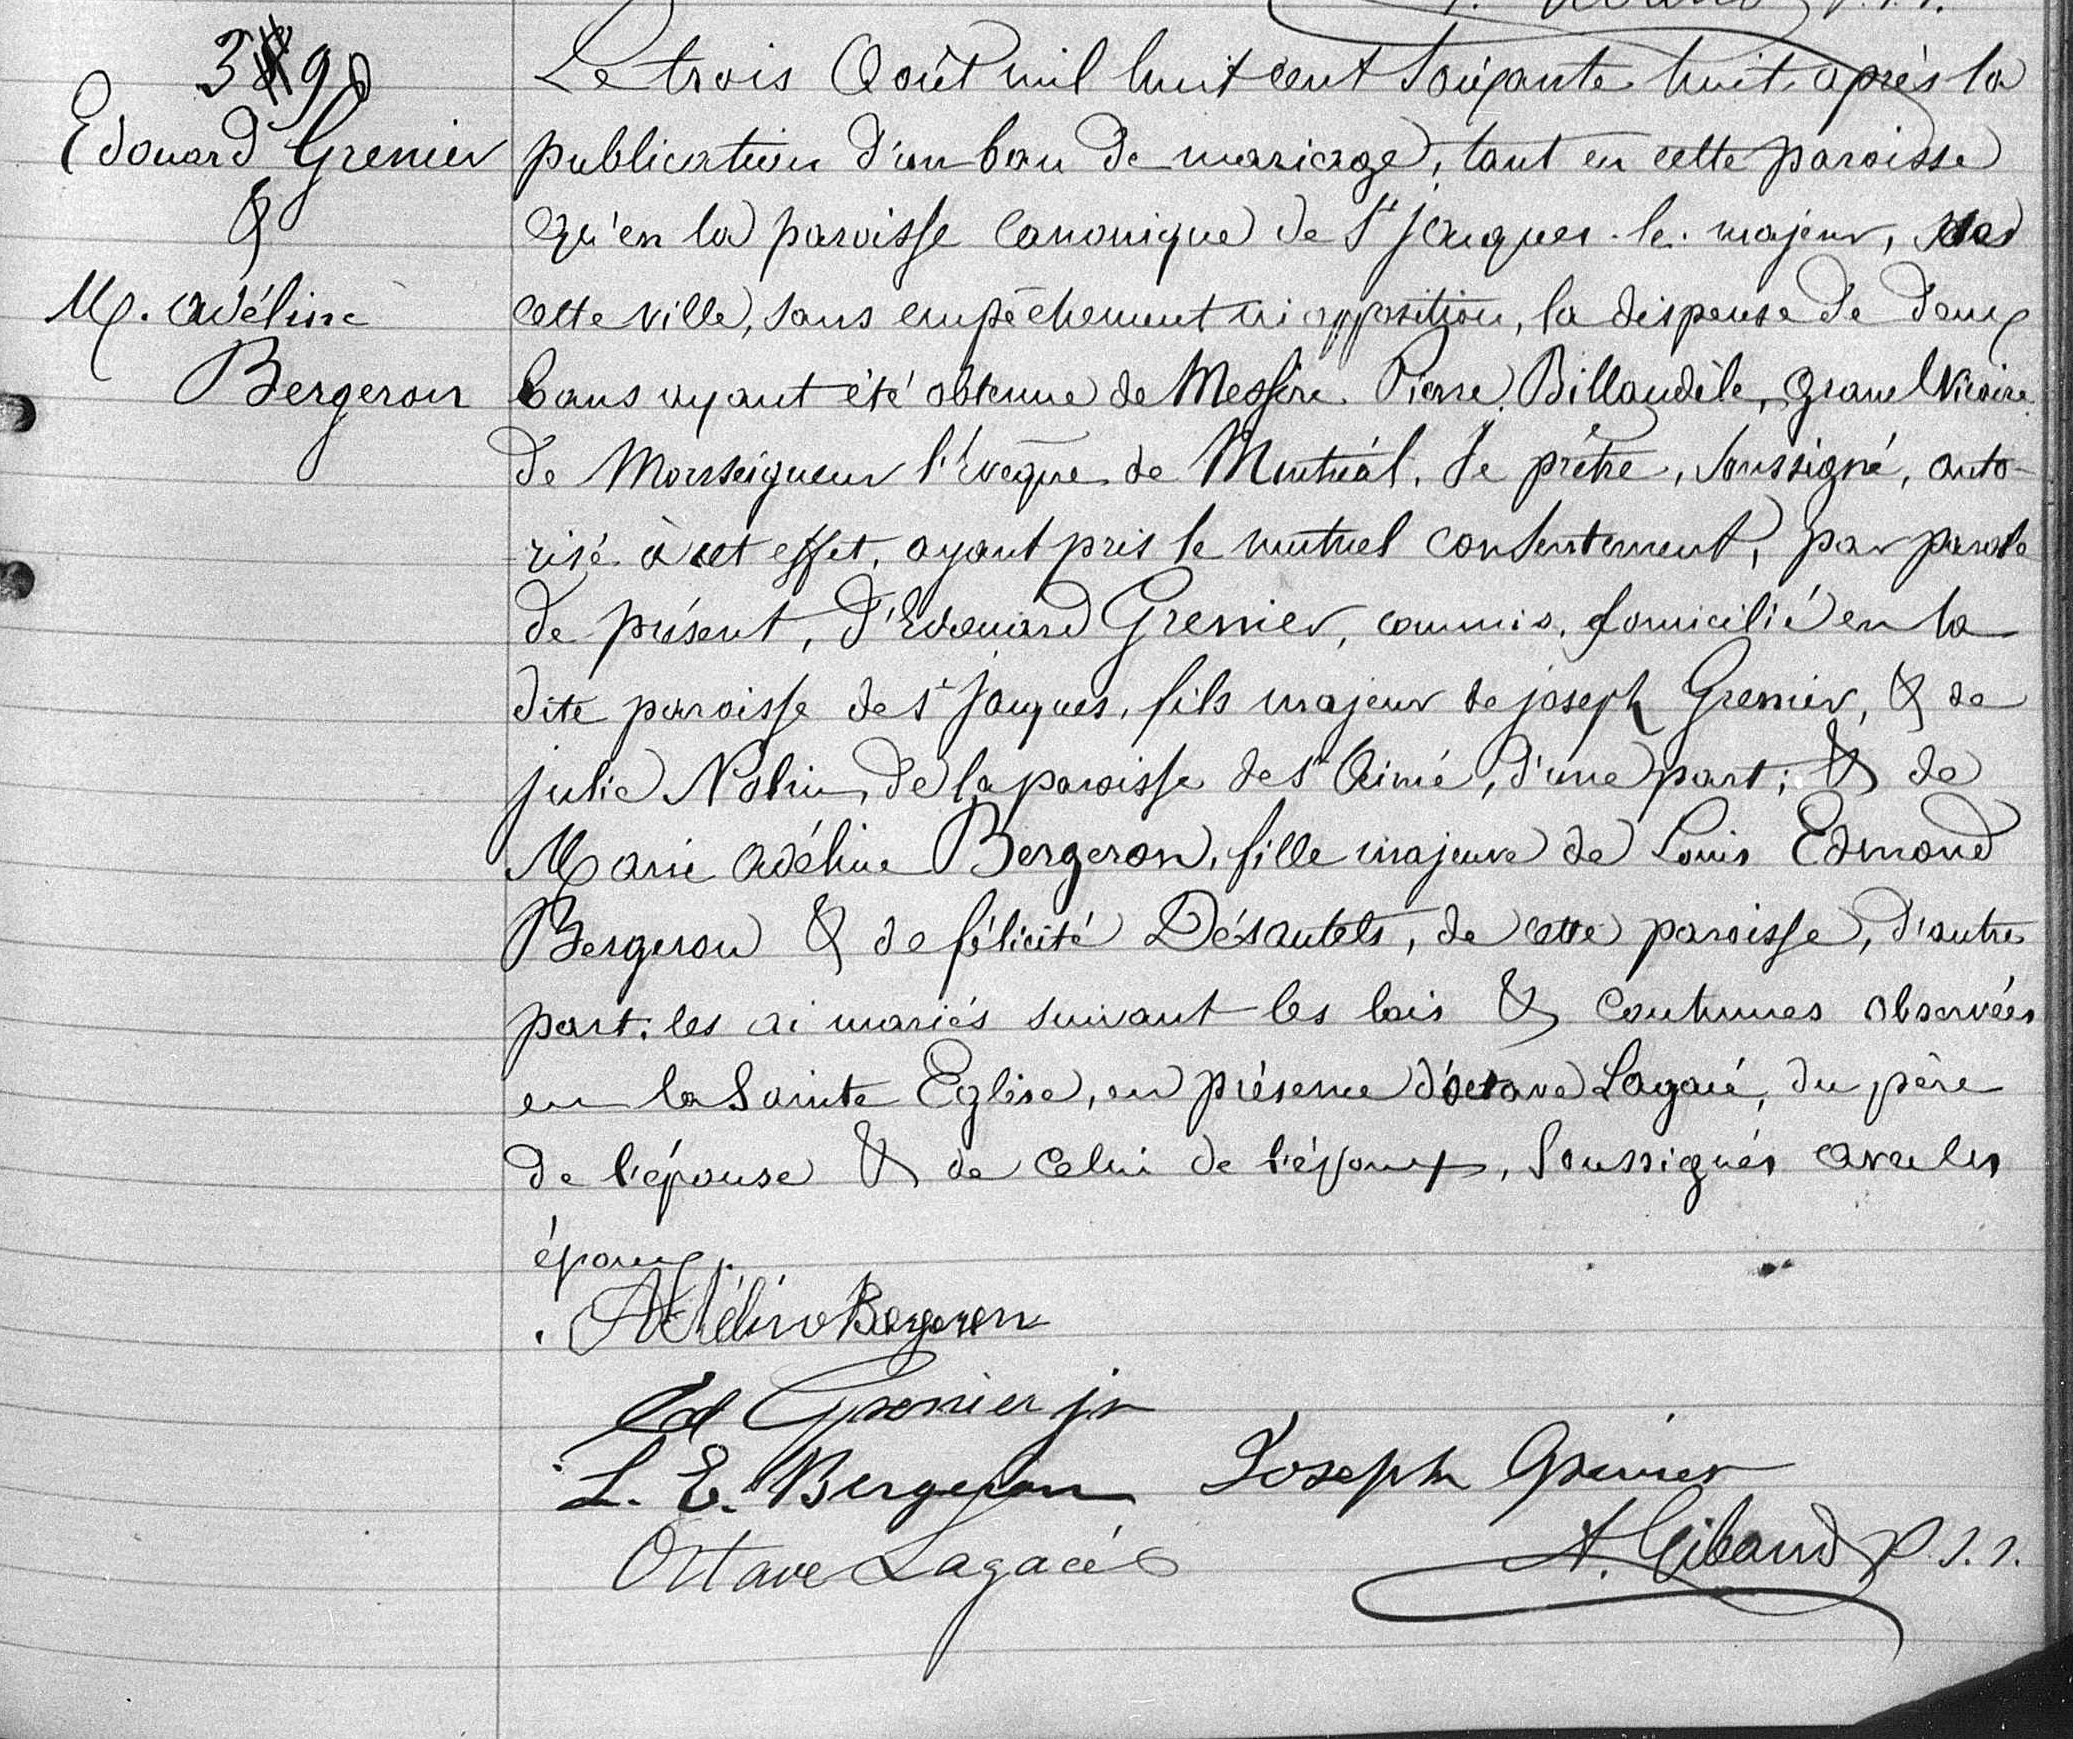 390
Edouard Grenier
&
M. Adéline
Bergeron
Le trois Août mil huit cent soixante huit, après la
publication d'un ban de mariage, tant en cette paroisse
qu'en la paroisse canonique de St Jacques-le-majeur, de
cette ville, sans empêchement ni opposition, la dispense de deux
bans ayant été obtenue de Messire Pierre Billaudèle, Grand Vicaire
de Monseigneur l'Evêque de Montréal, Je prêtre, soussigné, auto-
risé à cet effet, ayant pris le mutuel consentement, par parole
de présent, d'Edouard Grenier, commis, domicilié en la
dite paroisse de St Jacques, fils majeur de joseph Grenier, & de
julie Nolin, de la paroisse de St Aimé, d'une part; & de
Marie Adéline Bergeron, fille majeure de Louis Edmond
Bergeron & de félicité Désautels, de cette paroisse, d'autre
part; les ai mariés suivant les lois & coutumes observées
en la Sainte Eglise, en présence d'octave Lagacé, du père
de l'épouse & de celui de l'époux, soussignés avec les
époux.
Adéline Bergeron
Ed Grenier jr
L. E. Bergeron Joseph Grenier
Octave Lagacé
A. Gibaud p.s.s.